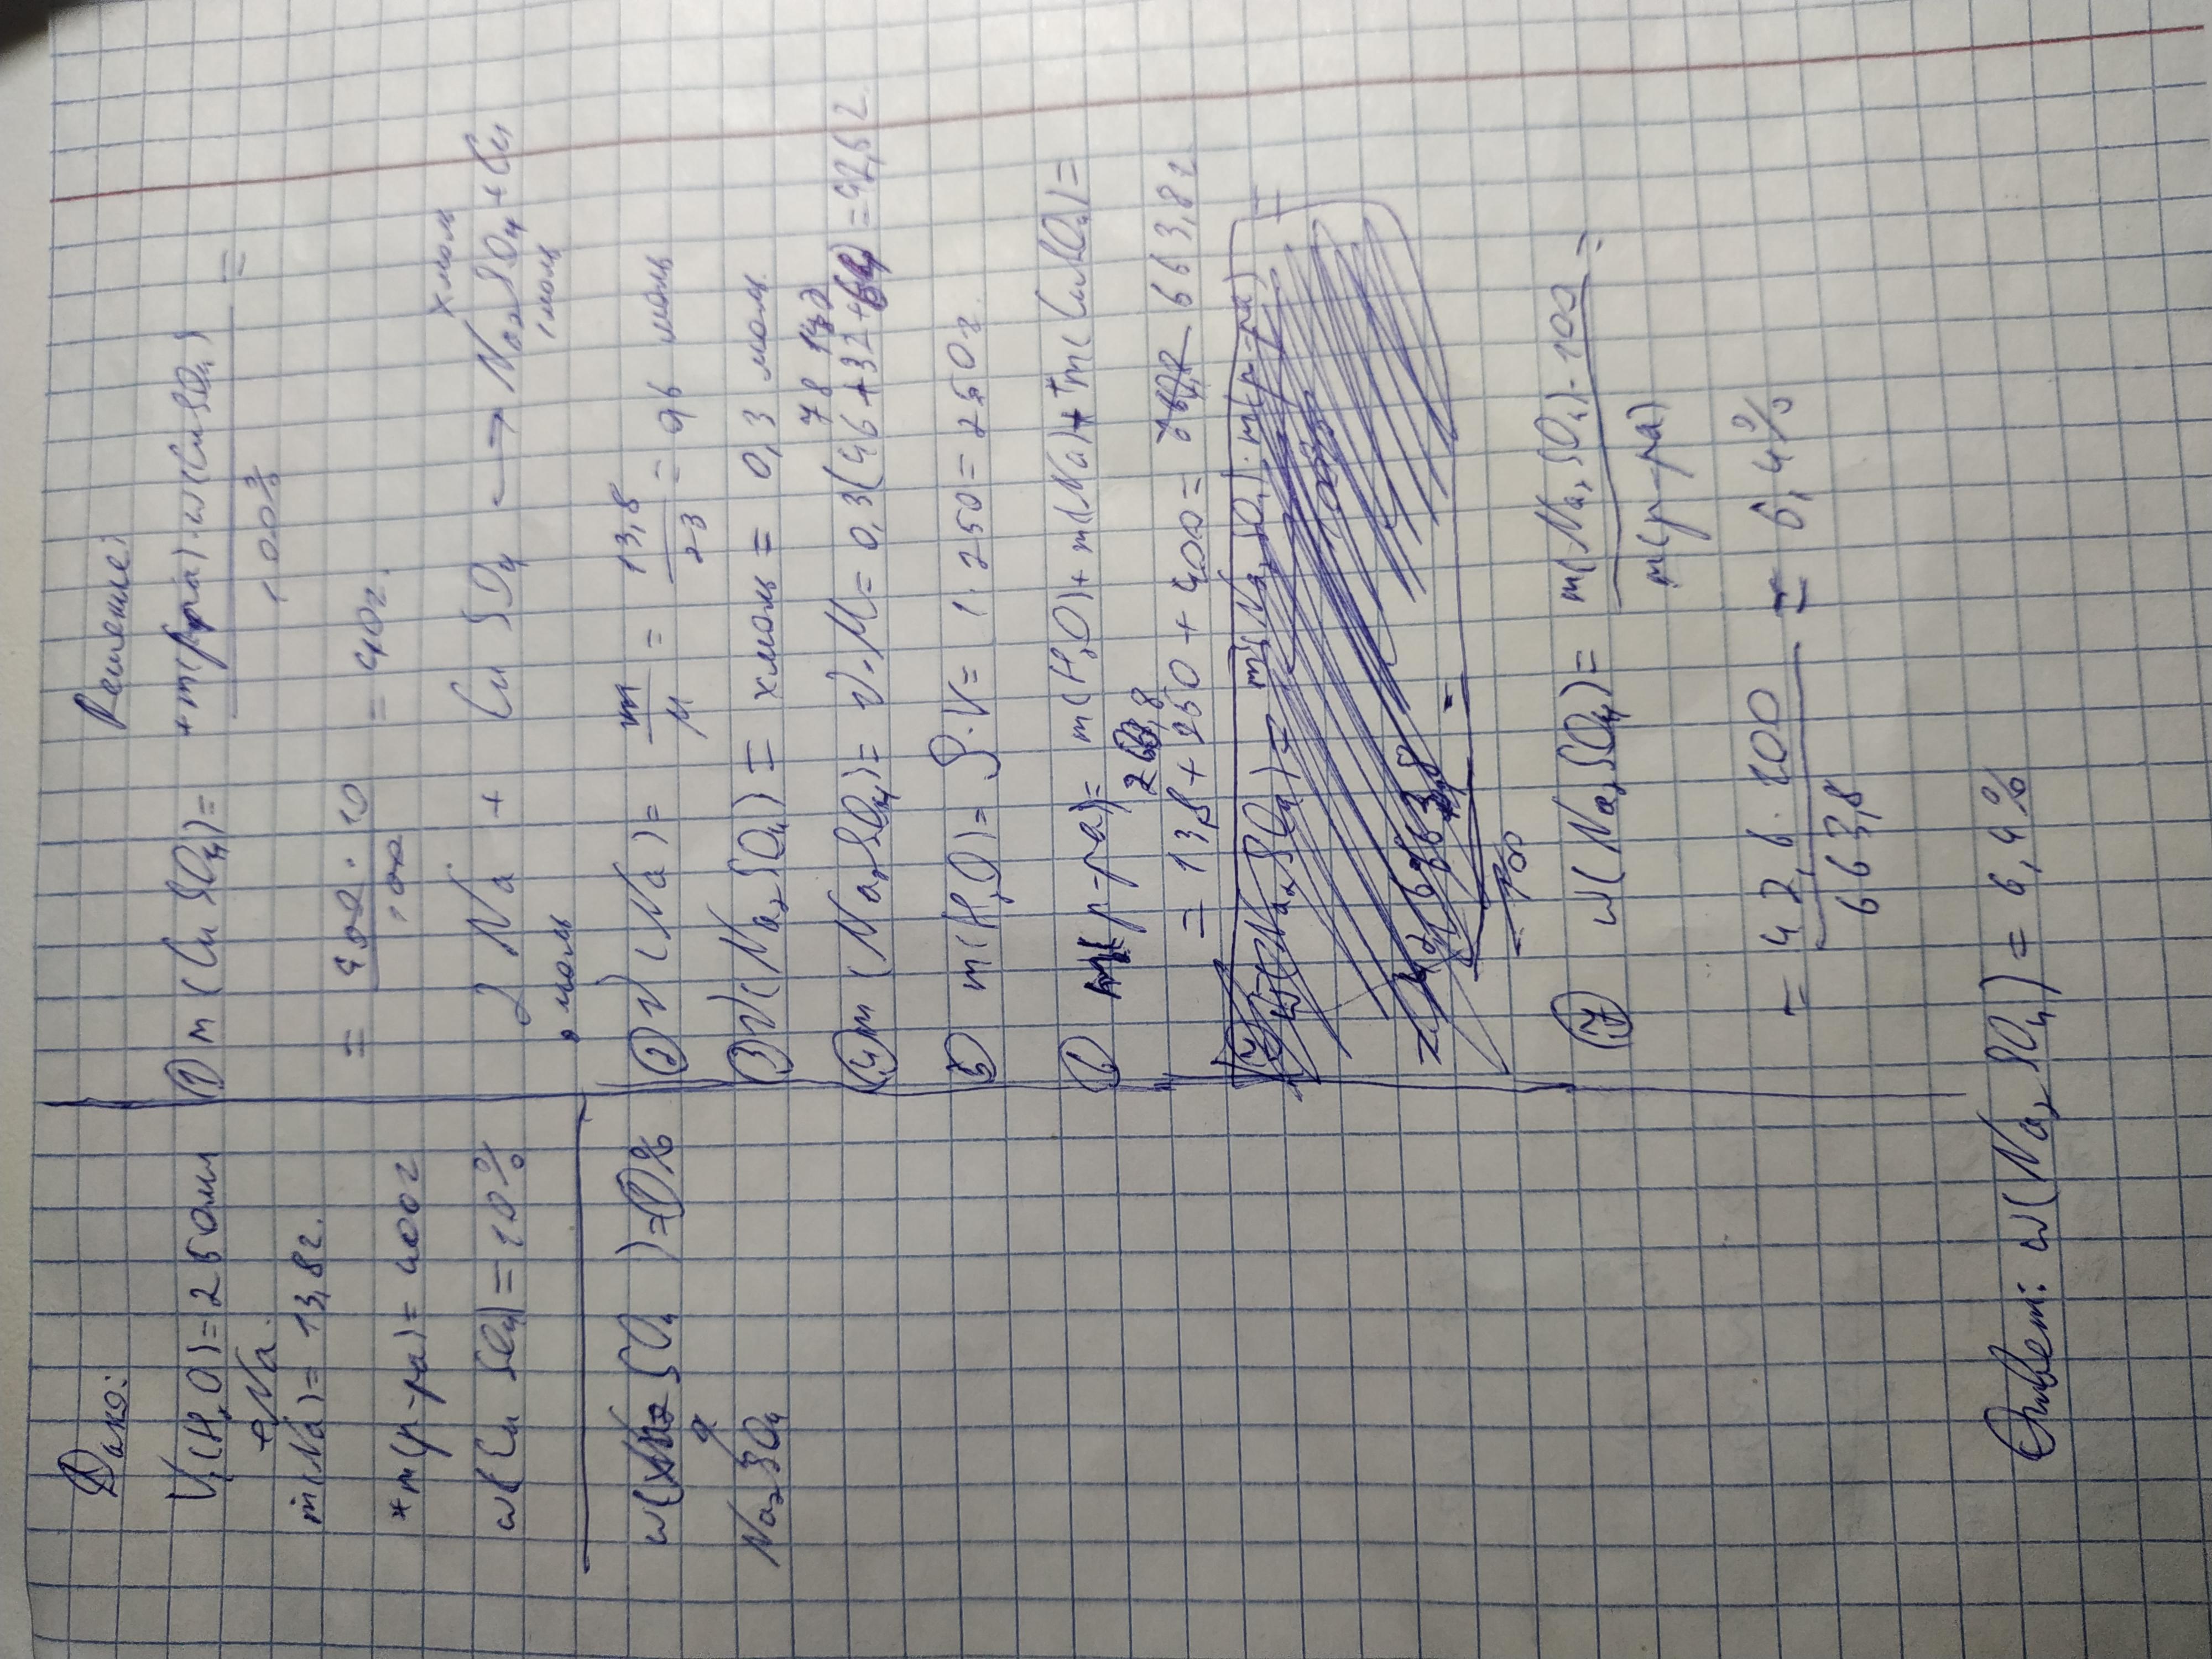 Дано:
V(H₂O) = 250мл
+ Na.
m(Na) = 13,8г.
+ m(р-ра) = 400г
w(CuSO₄) = 10%
w( SO₄ ) = ?%
Na₂SO₄
Решение:
① m(CuSO₄) = m(р-ра)·w(CuSO₄) =
100%
= 400·10 = 40г.
100
x моль
2Na + CuSO₄ → Na₂SO₄ + Cu
2 моль 1 моль
② ν(Na) = m/M = 13,8/23 = 0,6 моль
③ ν(Na₂SO₄) = x моль = 0,3 моль
78 142
④ m(Na₂SO₄) = ν·M = 0,3(46+32+64) = 42,6г.
⑤ m(H₂O) = ρ·V = 1·250 = 250г.
⑥ m(р-ра) = m(H₂O) + m(Na) + m(CuSO₄) =
263,8
= 13,8 + 250 + 400 = 663,8г
⑦ w(Na₂SO₄) = m(Na₂SO₄)·100 =
m(р-ра)
= 42,6·100 = 6,4%
663,8
Ответ: w(Na₂SO₄) = 6,4%